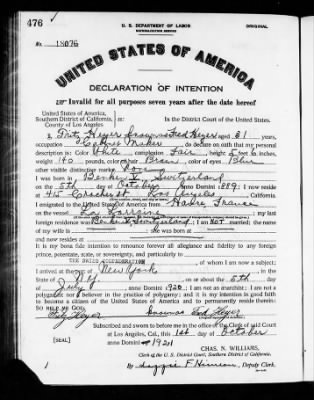 476
U. S. DEPARTMENT OF LABOR
NATURALIZATION SERVICE
ORIGINAL
No. 18076
UNITED STATES OF AMERICA
DECLARATION OF INTENTION
Invalid for all purposes seven years after the date hereof
United States of America,
Southern District of California, ss:
County of Los Angeles
In the District Court of the United States.
I, Fritz Heyer known as Fred Heyer aged 31 years,
occupation Cabinet Maker do declare on oath that my personal
description is: Color White complexion Fair height 5 feet inches,
weight 140 pounds, color of hair Brown color of eyes Blue
other visible distinctive marks
I was born in Switzerland
on the 5th day of October anno Domini 1889; I now reside
at 415 Los Angeles
I emigrated to the United States of America from Havre, France
on the vessel La Lorraine; my last
foreign residence was Switzerland; I am not married; the name
of my wife is ; she was born at
and now resides at
It is my bona fide intention to renounce forever all allegiance and fidelity to any foreign
prince, potentate, state, or sovereignty, and particularly to
THE SWISS CONFEDERATION of whom I am now a subject;
I arrived at the port of New York
State of N.Y. on or about the 5th day
of July anno Domini 1920; I am not an anarchist; I am not a
polygamist nor a believer in the practice of polygamy; and it is my intention in good faith
to become a citizen of the United States of America and to permanently reside therein:
SO HELP ME GOD.
Fritz Heyer known as Fred Heyer
Subscribed and sworn to before me in the office of the Clerk of said Court
at Los Angeles, Cal., this 1st day of October
[SEAL] anno Domini 1921
CHAS. N. WILLIAMS,
Clerk of the U. S. District Court, Southern District of California.
By Deputy Clerk.